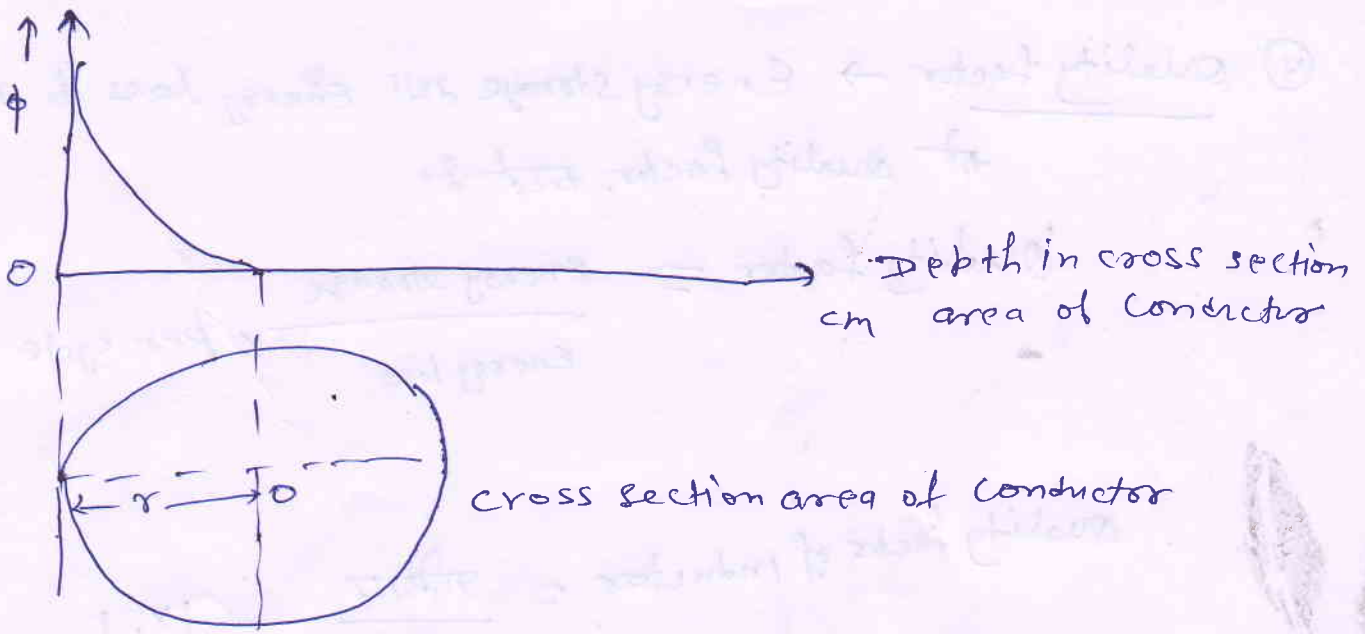 ϕ
0
Depth in cross section
cm area of Conductor
r
0
cross section area of Conductor